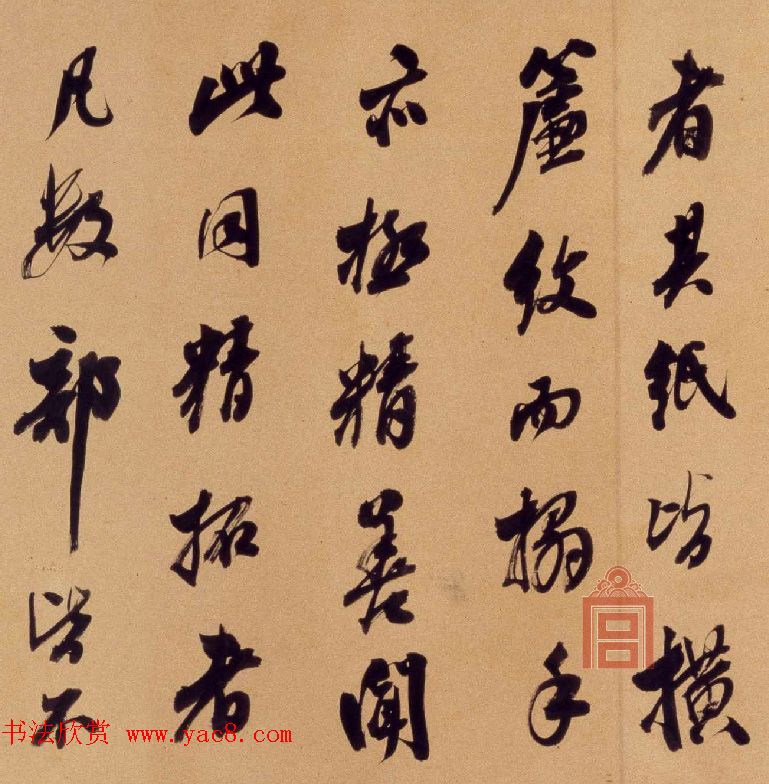 者其纸皆横
簾纹而搨手
亦極精善闻
此同精拓者
凡数部皆不
书法欣赏 www.yac8.com